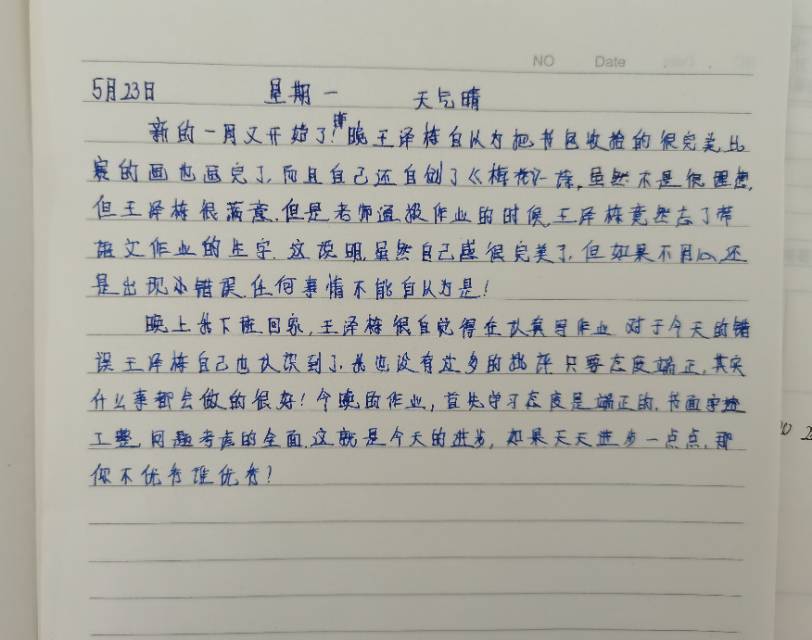 NO Date
5月23日 星期一 天气晴
新的一周又开始了!昨晚王泽栋自以为把书包收捡的很完美,比
赛的画也画完了,而且自己还自创了《梅花》一落,虽然不是很理想,
但王泽栋很满意.但是老师通报作业的时候,王泽栋竟然忘了带
语文作业的生字.这说明,虽然自己感很完美了,但如果不用心,还
是出现小错误.任何事情不能自以为是!
晚上我下班回家,王泽栋很自觉得在认真写作业 对于今天的错
误王泽栋自己也认识到了.我也没有过多的批评 只要态度端正,其实
什么事都会做的很好!今晚的作业,首先学习态度是端正的.书面字迹
工整,问题考虑的全面.这就是今天的进步,如果天天进步一点点,那
你不优秀谁优秀?